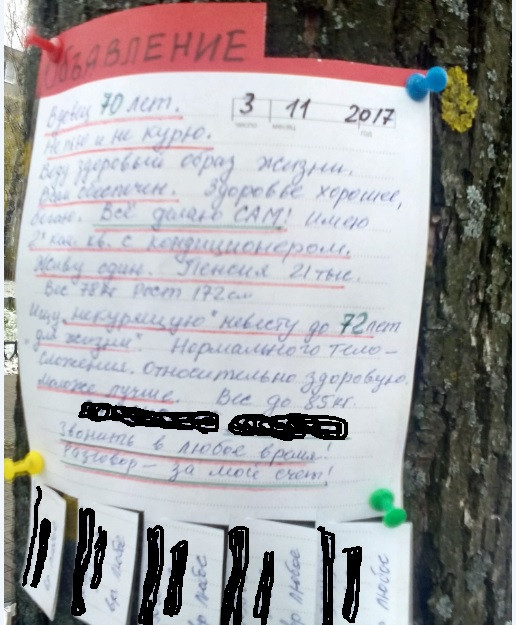 ОБЪЯВЛЕНИЕ
Вдовец 70 лет.
3 11 2017
Не пью и не курю.
Веду здоровый образ жизни.
обеспечен. Здоровье хорошее,
бегаю. Всё делаю САМ! Имею
2х ком. кв. с кондиционером.
Живу один. Пенсия 21 тыс.
Вес 78 кг Рост 172 см
Ищу "некурящую" невесту до 72 лет
"для жизни" Нормального тело-
сложения. относительно здоровую.
моложе лучше. Вес до 85 кг.
Звонить в любое время!
Разговор — за мой счет!
вр любое
вр любое
любое
любое
любое